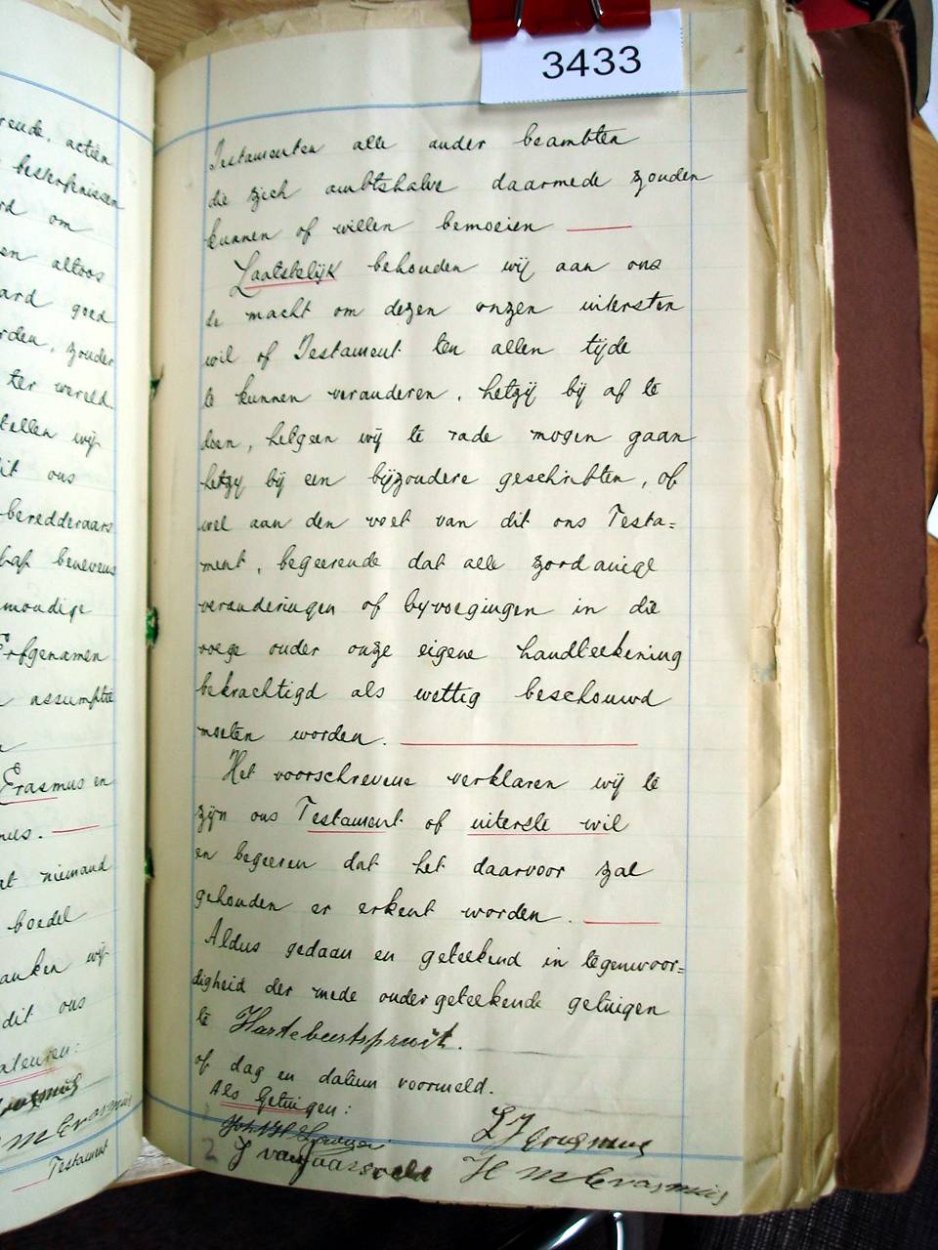 3433
rende, actiën
besterfenissen
rd om
en altoos
aard goed
rden, zouder
ter wereld
tellen wij
it ons
beredderaars
hap benevens
moudige
Erfgenamen
assumptie
Erasmus en
mus.
at niemand
boedel
anken wij
dit ons
M Erasmus
Testament
Testamenten alle ander beambten
die zich ambtshalve daarmede zouden
kunnen of willen bemoeien
Laatstelijk behouden wij aan ons
de macht om dezen onzen uitersten
wil of Testament ten allen tijde
te kunnen veranderen, hetzij bij af te
doen, hetgeen wij te rade mogen gaan
hetzy bij een bijzondere geschriften, of
wel aan den voet van dit ons Testa=
ment, begeerende dat alle zordanige
veranderingen of byvoegingen in die
voege onder onze eigene handteekening
bekrachtigd als wettig beschouwd
moeten worden.
Het voorschrevene verklaren wij te
zijn ons Testament of uiterste wil
en begeeren dat het daarvoor zal
gehouden er erkent worden.
Aldus gedaan en geteekend in tegenwoor=
digheid der mede ondergeteekende getuigen
te Hartebeestspruit.
of dag en datum voormeld.
Als Getuigen:
L J Erasmus
2 J van Jaarsveld H M Erasmus